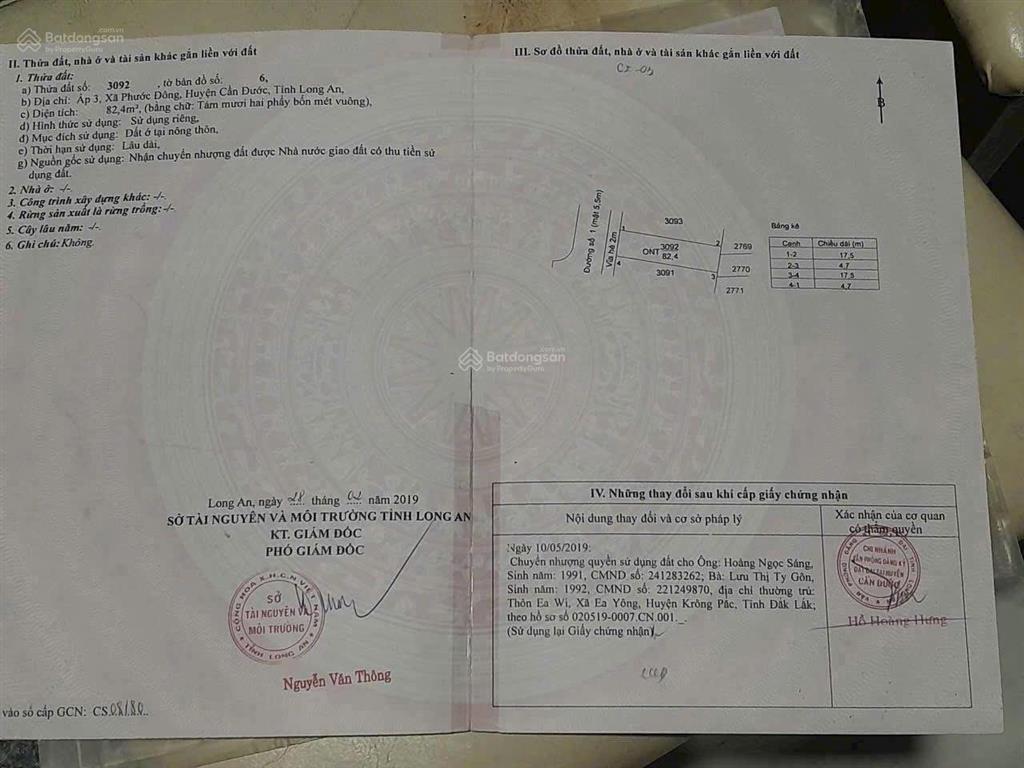 Batdongsan.com.vn
by PropertyGuru
II. Thửa đất, nhà ở và tài sản khác gắn liền với đất
1. Thửa đất:
a) Thửa đất số: 3092, tờ bản đồ số: 6,
b) Địa chỉ: Ấp 3, Xã Phước Đông, Huyện Cần Đước, Tỉnh Long An,
c) Diện tích: 82,4m², (bằng chữ: Tám mươi hai phẩy bốn mét vuông),
d) Hình thức sử dụng: Sử dụng riêng,
đ) Mục đích sử dụng: Đất ở tại nông thôn,
e) Thời hạn sử dụng: Lâu dài,
g) Nguồn gốc sử dụng: Nhận chuyển nhượng đất được Nhà nước giao đất có thu tiền sử
dụng đất.
2. Nhà ở: -/-
3. Công trình xây dựng khác: -/-
4. Rừng sản xuất là rừng trồng: -/-
5. Cây lâu năm: -/-
6. Ghi chú: Không.
Long An, ngày 28 tháng 02 năm 2019
SỞ TÀI NGUYÊN VÀ MÔI TRƯỜNG TỈNH LONG AN
KT. GIÁM ĐỐC
PHÓ GIÁM ĐỐC
CỘNG HÒA X.H.C.N VIỆT NAM
SỞ
TÀI NGUYÊN VÀ
MÔI TRƯỜNG
TỈNH LONG AN
Nguyễn Văn Thông
vào sổ cấp GCN: CS.08180..
III. Sơ đồ thửa đất, nhà ở và tài sản khác gắn liền với đất
B
Đường số 1 (mặt 5,5m)
Vỉa hè 2m
3093
1
2
2769
ONT 3092
82,4
4
3091
3
2770
2771
Bảng kê
Cạnh Chiều dài (m)
1-2 17,5
2-3 4,7
3-4 17,5
4-1 4,7
Batdongsan.com.vn
by PropertyGuru
IV. Những thay đổi sau khi cấp giấy chứng nhận
Nội dung thay đổi và cơ sở pháp lý
Xác nhận của cơ quan
có thẩm quyền
Ngày 10/05/2019:
Chuyển nhượng quyền sử dụng đất cho Ông: Hoàng Ngọc Sáng,
Sinh năm: 1991, CMND số: 241283262; Bà: Lưu Thị Ty Gôn,
Sinh năm: 1992, CMND số: 221249870, địa chỉ thường trú:
Thôn Ea Wi, Xã Ea Yông, Huyện Krông Pắc, Tỉnh Đắk Lắk;
theo hồ sơ số 020519-0007.CN.001._.
(Sử dụng lại Giấy chứng nhận)
CHI NHÁNH
VĂN PHÒNG ĐĂNG KÝ
ĐẤT ĐAI TẠI HUYỆN
CẦN ĐƯỚC
Hồ Hoàng Hưng
Batdongsan.com.vn
by PropertyGuru